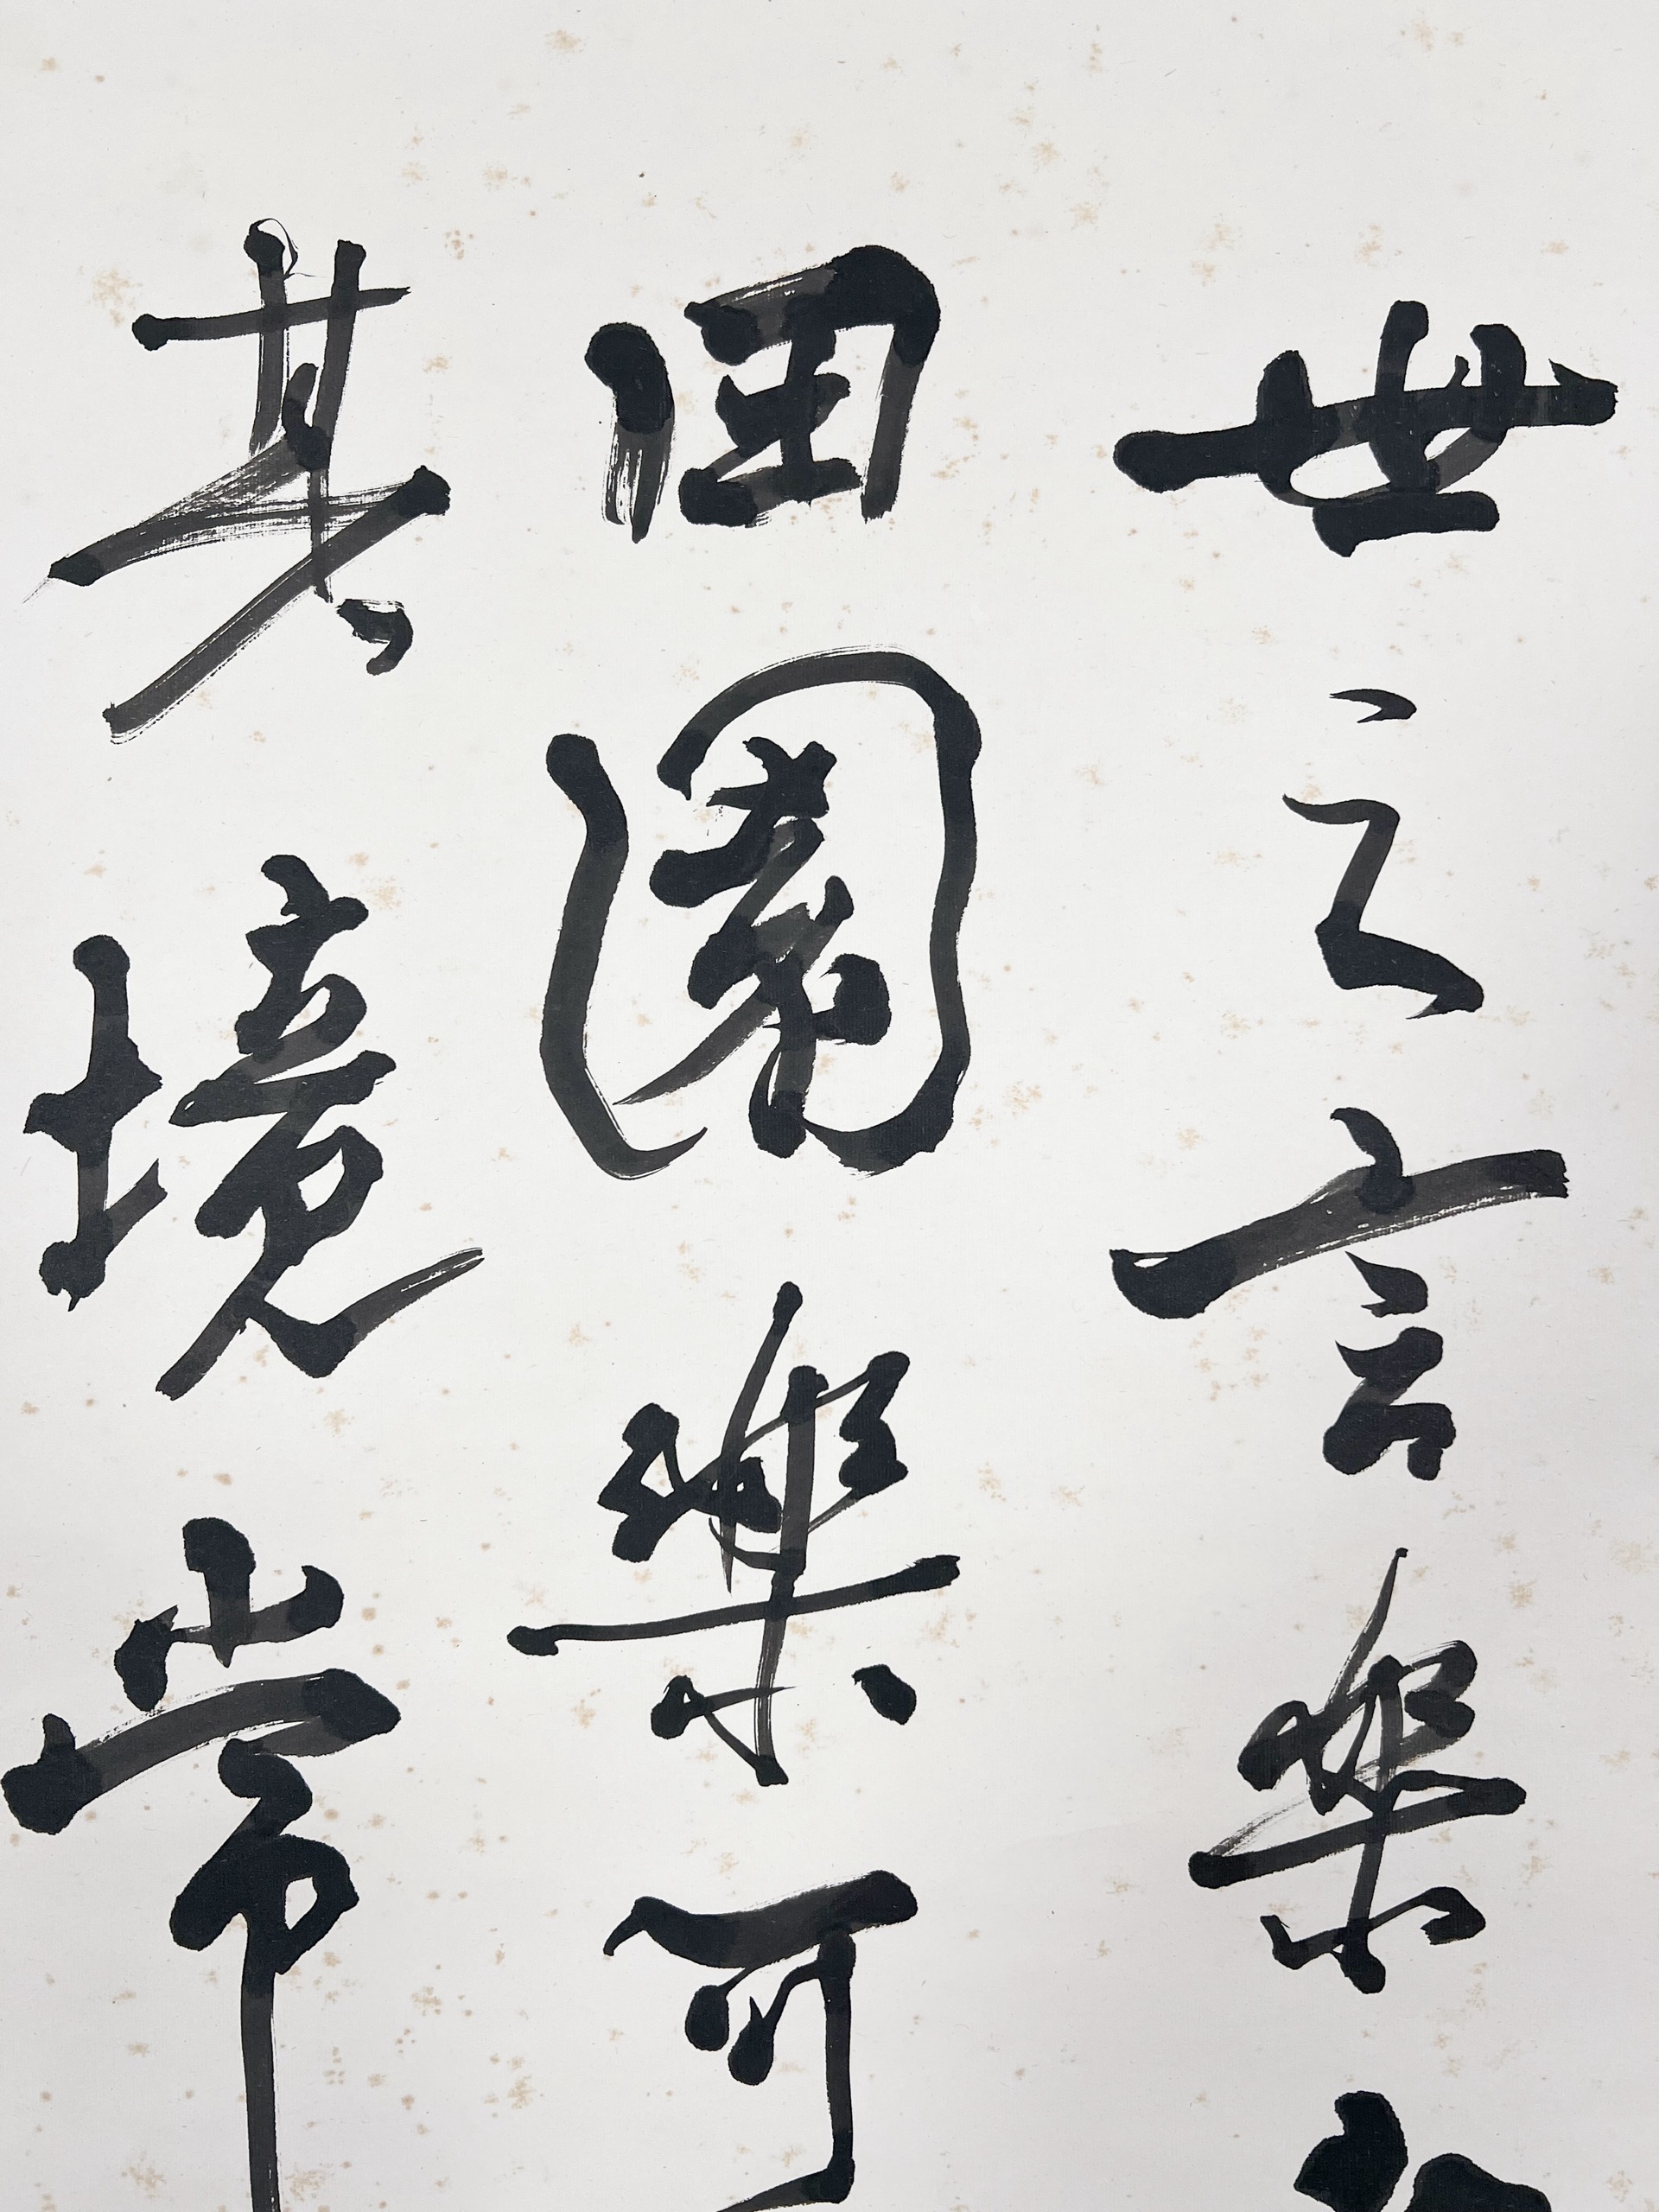 世之言樂
田園樂可
其境常